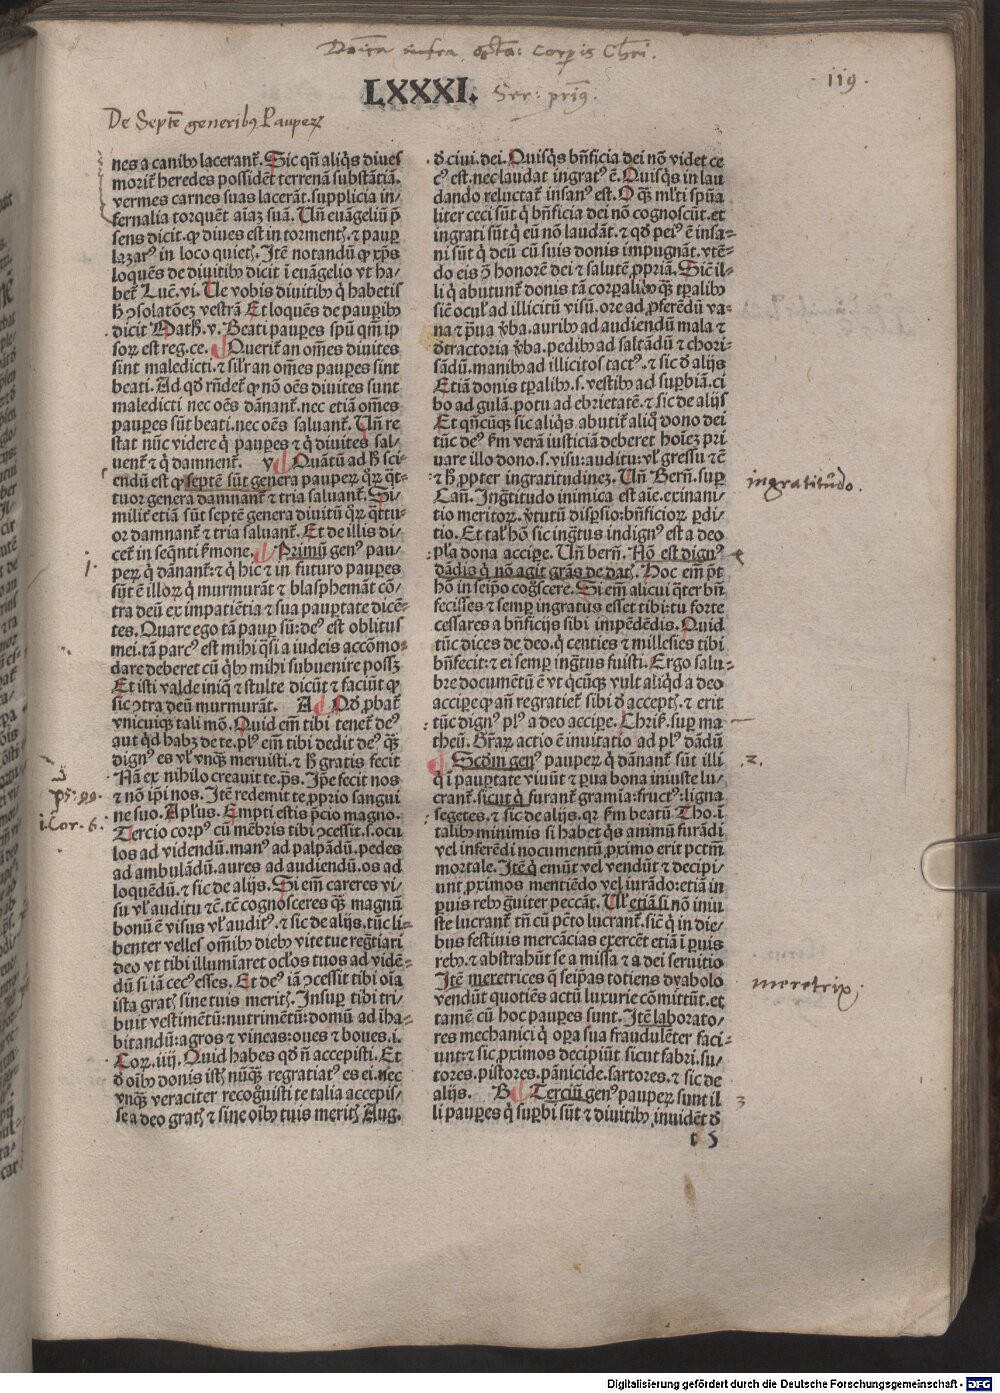 Dõica infra octa: Corpis Chri.
119.
LXXXI.
Ser: primꝰ.
De Septē generibꝰ Pauperꝝ
nes a canibꝰ lacerant᷑. Sic qñ aliq̇s diues
morit᷑ heredes possidēt terrenā substātiā.
vermes carnes suas lacerāt. supplicia in/
fernalia torquēt aīaꝫ suā. Uñ euāgeliū p̄
sens dicit. ꝙ diues est in tormentꝭ. ⁊ paup̱
lazarꝰ in loco quietꝭ. Itē notandū ꝙ xp̄s
loquēs de diuitibꝰ dicit ī euāgelio vt ha/
bet᷑ Luc̄. vi. Ue vobis diuitibꝰ q̇ habetis
hͦ ꝯsolatōeꝫ vestrā Et loquēs de paupibꝰ
dicit Math̄. v. Beati paupes spū qm̄ ip
soꝝ est reg. ce. Querit᷑ an om̄es diuites
sint maledicti. ⁊ silr̄ an om̄es paup̱es sint
beati. Ad qd̄ rñdet᷑ ꝙ nō oēs diuites sunt
maledicti nec oēs dānant᷑. nec etiā om̄es
paup̱es sūt beati. nec oēs saluant᷑. Uñ re
stat nūc videre q̇ paup̱es ⁊ q̇ diuites sal/
uent᷑ ⁊ q̇ damnent᷑. Quātū ad hͦ sci/
endū est ꝙ septē sūt genera paup̱eꝝ qꝝ q̄t
tuor genera damnant᷑ ⁊ tria saluant᷑. Si
milit᷑ etiā sūt septē genera diuitū qꝝ q̄ttu/
or damnant᷑ ⁊ tria saluant᷑. Et de illis di
cet᷑ in seq̄nti ẜmone. Primū genꝰ pau/
peꝝ q̇ dānant᷑: ⁊ q̇ hic ⁊ in futuro paup̱es
sūt ē illoꝝ q̇ murmurāt ⁊ blasphemāt cō/
tra deū ex impatiētia ⁊ sua paup̱tate dicē-
tes. Quare ego tā paup̱ sū: deꝰ est oblitus
mei. tā parcꝰ est mihi q̇si a iudeis accōmo-
dare deberet cū q̇bꝰ mihi subuenire possꝫ
Et isti valde iniq̇ ⁊ stulte dicūt ⁊ faciūt ꝙ
sic ꝯtra deū murmurāt. A Qd̄ ꝓbat᷑
vnicuiqꝫ tali mō. Quid em̄ tibi tenet᷑ deꝰ
aut q̇d habꝫ de te. plꝰ em̄ tibi dedit deꝰ q̄ꝫ
dignꝰ es vl̓ vnq̄ꝫ meruisti. ⁊ hͦ gratis fecit
Nā ex nihilo creauit te. ps̄. Ip̄e fecit nos
⁊ nō ip̄i nos. Itē redemit te ꝓprio sangui
ne suo. Apl̓us. Empti estis p̄cio magno.
Tercio corpꝰ cū mēbris tibi ꝯcessit. s. ocu
los ad videndū. manꝰ ad palpādū. pedes
ad ambulādū. aures ad audiendū. os ad
loquēdū. ⁊ sic de alijs. Si em̄ careres vi/
su vl̓ auditu ⁊c̄. tē cognosceres q̄ꝫ magnū
bonū ē visus vl̓ auditꝰ. ⁊ sic de alijs. tūc li-
benter velles om̄ibꝰ diebꝰ vite tue reg̃tiari
deo vt tibi illumīaret oc̄los tuos ad vidē-
dū si iā cecꝰ esses. Et deꝰ iā ꝯcessit tibi oīa
ista gratꝭ sine tuis meritꝭ. Insup̱ tibi tri/
buit vestimētū: nutrimētū: domū ad īha-
bitandū: agros ⁊ vineas: oues ⁊ boues. i.
Coꝝ. iiij. Quid habes qd̄ ñ accepisti. Et
ď oībꝰ donis istꝭ nūq̄ꝫ regratiatꝰ es ei. nec
vnq̄ꝫ veraciter recog̃uisti te talia accepis/
se a deo gratꝭ ⁊ sine oībꝰ tuis meritꝭ Aug.
ď ciui. dei. Quisq̇s bñficia dei nō videt ce
cꝰ est. nec laudat ingratꝰ ē. Quisq̇s in lau
dando reluctat᷑ insanꝰ est. O q̄ꝫ ml̓ti spūa
liter ceci sūt q̇ bñficia dei nō cognoscūt. et
ingrati sūt q̇ eū nō laudāt. ⁊ qd̄ peiꝰ ē insa-
ni sūt q̇ deū cū suis donis impugnāt. vtē-
do eis ꝯ̄ honorē dei ⁊ salutē ꝓpriā. Sic̄ il-
li q̇ abutunt᷑ donis tā corꝑalibꝰ q̄ꝫ tꝑalibꝰ
sic̄ oculo ad illicitū visū. ore ad ꝓferēdū va-
na ⁊ p̄ua v̓ba. auribꝰ ad audiendū mala ⁊
ďtractoria v̓ba. pedibꝰ ad saltādū ⁊ chori-
sādū. manibꝰ ad illicitos tactꝰ. ⁊ sic ď alijs
Etiā donis tꝑalibꝰ. s. vestibꝰ ad suꝑbiā. ci
bo ad gulā. potu ad ebrietatē. ⁊ sic de alijs
Et qñcūqꝫ sic aliq̇s abutit᷑ aliq̊ dono dei
tūc deꝰ ẜm verā iusticiā deberet hoīeꝫ pri
uare illo dono. s. visu: auditu: vl̓ gressu ⁊c̄
⁊ hͦ ꝓpter ingratitudineꝫ. Uñ Bern̄. suꝑ
Cañ. Ing̃titudo inimica est aīe. exinani/
tio meritoꝝ. v̓tutū disꝑsio: bñficioꝝ ꝑdi/
tio. Et tal̓ hō sic ing̃tus indignꝰ est a deo
pl̓a dona accipe. Uñ bern̄. Nō est dignꝰ
dādis q̇ nō agit grās de datꝭ. Hoc em̄ p̄t
hō in seip̄o cog̃scere. Si em̄ alicui q̇ter bñ
fecisses ⁊ semꝑ ingratus esset tibi: tu forte
cessares a bñficijs sibi impēdēdis. Quid
tūc dices de deo. q̇ centies ⁊ millesies tibi
bñfecit: ⁊ ei semꝑ ing̃tus fuisti. Ergo salu-
bre documētū ē vt q̇cūqꝫ vult aliq̇d a deo
accipe ꝙ añ regratiet᷑ sibi ď acceptꝭ. ⁊ erit
tūc dignꝰ plꝰ a deo accipe. Chris̄. suꝑ ma
theū. Gr̄aꝝ actio ē inuitatio ad plꝰ dādū
Scd̄m genꝰ paupeꝝ q̇ dānant᷑ sūt illi
q̇ ī pauꝑtate viuūt ⁊ ꝑua bona iniuste lu/
crant᷑. sicut q̇ furant᷑ gramīa: fructꝰ: ligna
segetes. ⁊ sic de alijs. qꝛ ẜm beatū Tho. ī
talibꝰ minimis si habet q̇s animū furādi
vel inferēdi nocumentū ꝓximo erit pctm̄
mortale. Itē q̇ emūt vel vendūt ⁊ decipi/
unt ꝓximos mentiēdo vel iurādo: etiā in
ꝑuis rebꝰ g̊uiter peccāt. Ul̓ etiā si nō iniu
ste lucrant᷑. tñ cū pctō lucrant᷑. sic̄ q̇ in die/
bus festiuis mercācias exercēt etiā ī ꝑuis
rebꝰ. ⁊ abstrahūt se a missa ⁊ a dei seruitio
Itē meretrices q̄ seip̄as totiens dyabolo
vendūt quotiēs actū luxurie cōmittūt. et
tamē cū hoc paup̱es sunt. Itē laborato/
res mechanici q̇ oꝑa sua fraudulēter faci/
unt: ⁊ sic ꝓximos decipiūt sicut fabri. su/
tores. pistores. pānicide. sartores. ⁊ sic de
alijs. B Terciū genꝰ paupeꝝ sunt il
li paup̱es q̇ suꝑbi sūt ⁊ diuitibꝰ inuidēt ď
t 5
1.
ps: 99.
i. Cor. 6.
ingratitudo.
2.
meretrix.
3
Digitalisierung gefördert durch die Deutsche Forschungsgemeinschaft - DFG